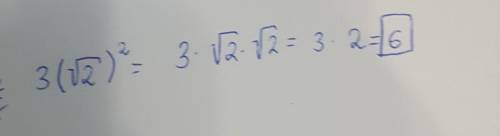 3(√2)² = 3 · √2 · √2 = 3 · 2 = 6